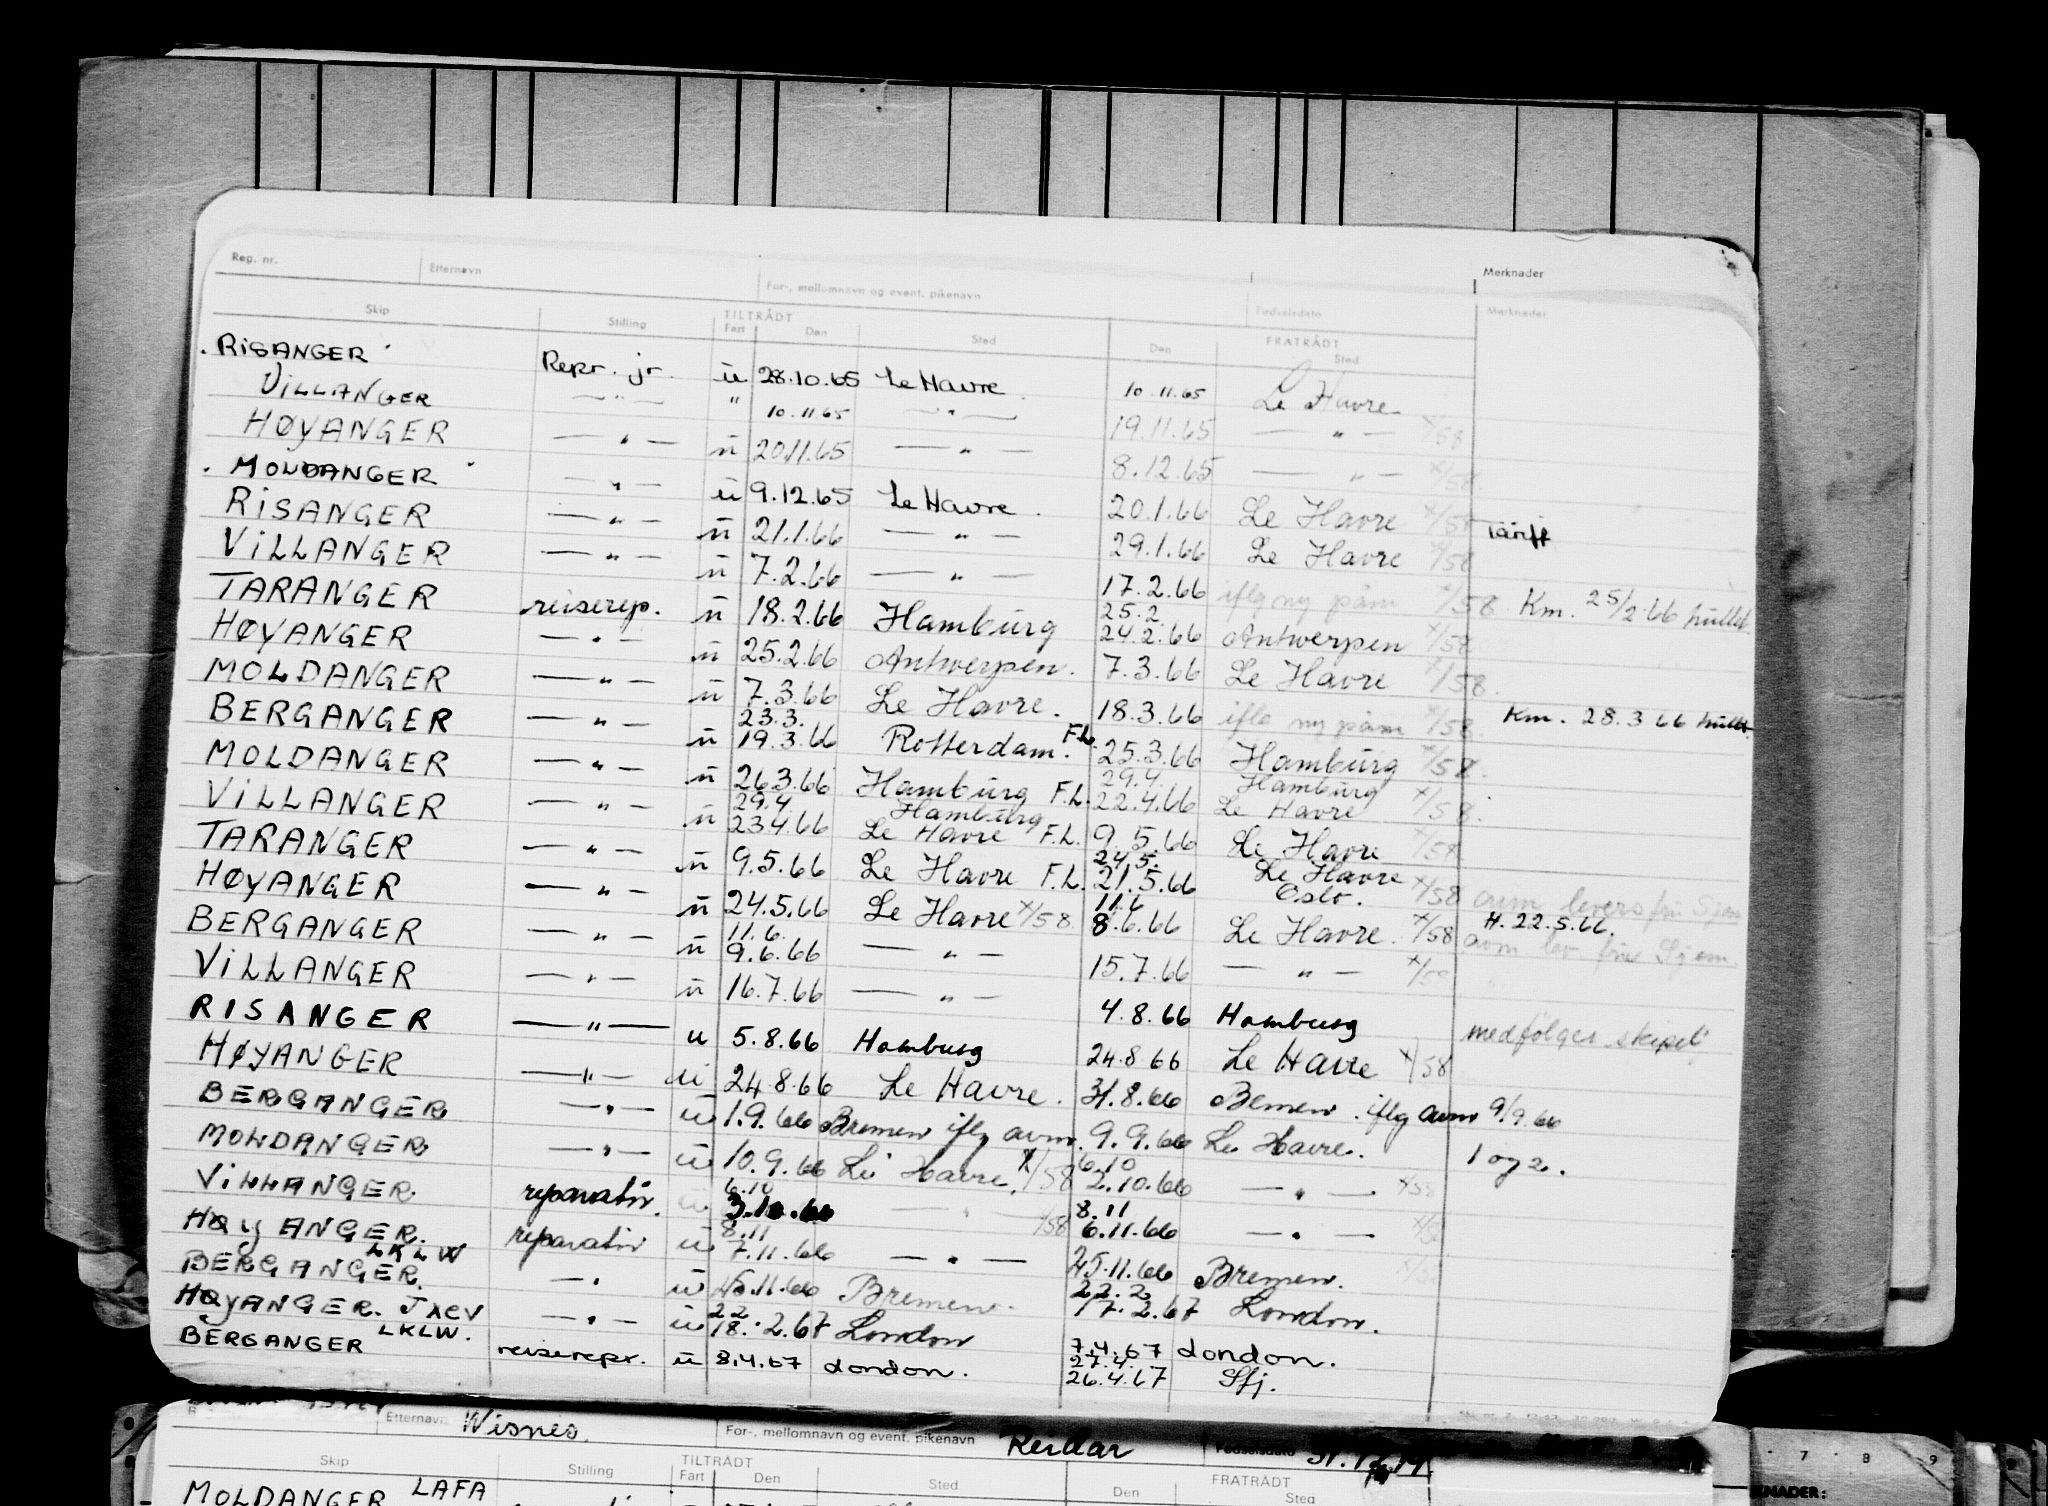 Reg. nr. Etternavn For-, mellomnavn og event. pikenavn Fødselsdato Merknader
Skip Stilling TILTRÅDT Fart Den Sted Den FRATRÅDT Sted Merknader
RISANGER Repr. jr. u 28.10.65 Le Havre 10.11.65 Le Havre
VILLANGER — " — " 10.11.65 — " — 19.11.65 — " — x/58
HØYANGER — " — u 20.11.65 — " — 8.12.65 — " — x/58
MOLDANGER — " — u 9.12.65 Le Havre. 20.1.66 Le Havre x/58 Tariff
RISANGER — " — u 21.1.66 — " — 29.1.66 Le Havre x/58
VILLANGER — " — u 7.2.66 — " — 17.2.66 iflg ny påm x/58 Km. 25/2 66 hullet.
TARANGER reiserep. u 18.2.66 Hamburg 25.2. 24.2.66 Antwerpen x/58
HØYANGER — " — u 25.2.66 Antwerpen. 7.3.66 Le Havre x/58.
MOLDANGER — " — u 7.3.66 Le Havre. 18.3.66 iflg ny påm x/58. Km. 28.3 66 hullet
BERGANGER — " — u 23.3. 19.3.66 Rotterdam. F.L. 25.3.66 Hamburg x/58.
MOLDANGER — " — u 26.3.66 Hamburg F.L. 29.4. 22.4.66 Hamburg Le Havre x/58.
VILLANGER — " — u 29.4 23.4.66 Hamburg Le Havre F.L. 9.5.66 Le Havre x/58
TARANGER — " — u 9.5.66 Le Havre F.L. 24.5. 21.5.66 Le Havre Oslo. x/58
HØYANGER — " — u 24.5.66 Le Havre x/58 11.6 8.6.66 Le Havre. x/58 H. 22.5.66.
BERGANGER — " — u 11.6. 9.6.66 — " — 15.7.66 — " — x/58
VILLANGER — " — u 16.7.66 — " — 4.8.66 Hamburg medfølger skipet
RISANGER — " — u 5.8.66 Hamburg 24.8.66 Le Havre x/58
HØYANGER — " — u 24.8.66 Le Havre. 31.8.66 Bemen. iflg avm 9/9.66
BERGANGER — " — u 1.9.66 Bremen iflg avm. 9.9.66 Le Havre. 1 og 2.
MOLDANGER — " — u 10.9.66 Le Havre. x/58 6.10 2.10.66 — " — x/58
VILLANGER reparatør. u 6.10 3.10.66 — " — x/58 8.11 6.11.66 — " —
HØYANGER. reparatør u 8.11 7.11.66 — " — 25.11.66 Bremen.
BERGANGER. LKLW — " u 11.66 Bremen. 22.2 17.2.67 London.
HØYANGER. JXCV — " — u 22 18.2.67 London 7.4.67 London.
BERGANGER LKLW. reiserepr. u 8.4.67 London. 27.4. 26.4.67 Sfj.
Etternavn Wisnes For-, mellomnavn og event. pikenavn Reidar Fødselsdato
Skip Stilling TILTRÅDT Fart Den Sted Den FRATRÅDT Sted
MOLDANGER LAFA
7 8 9